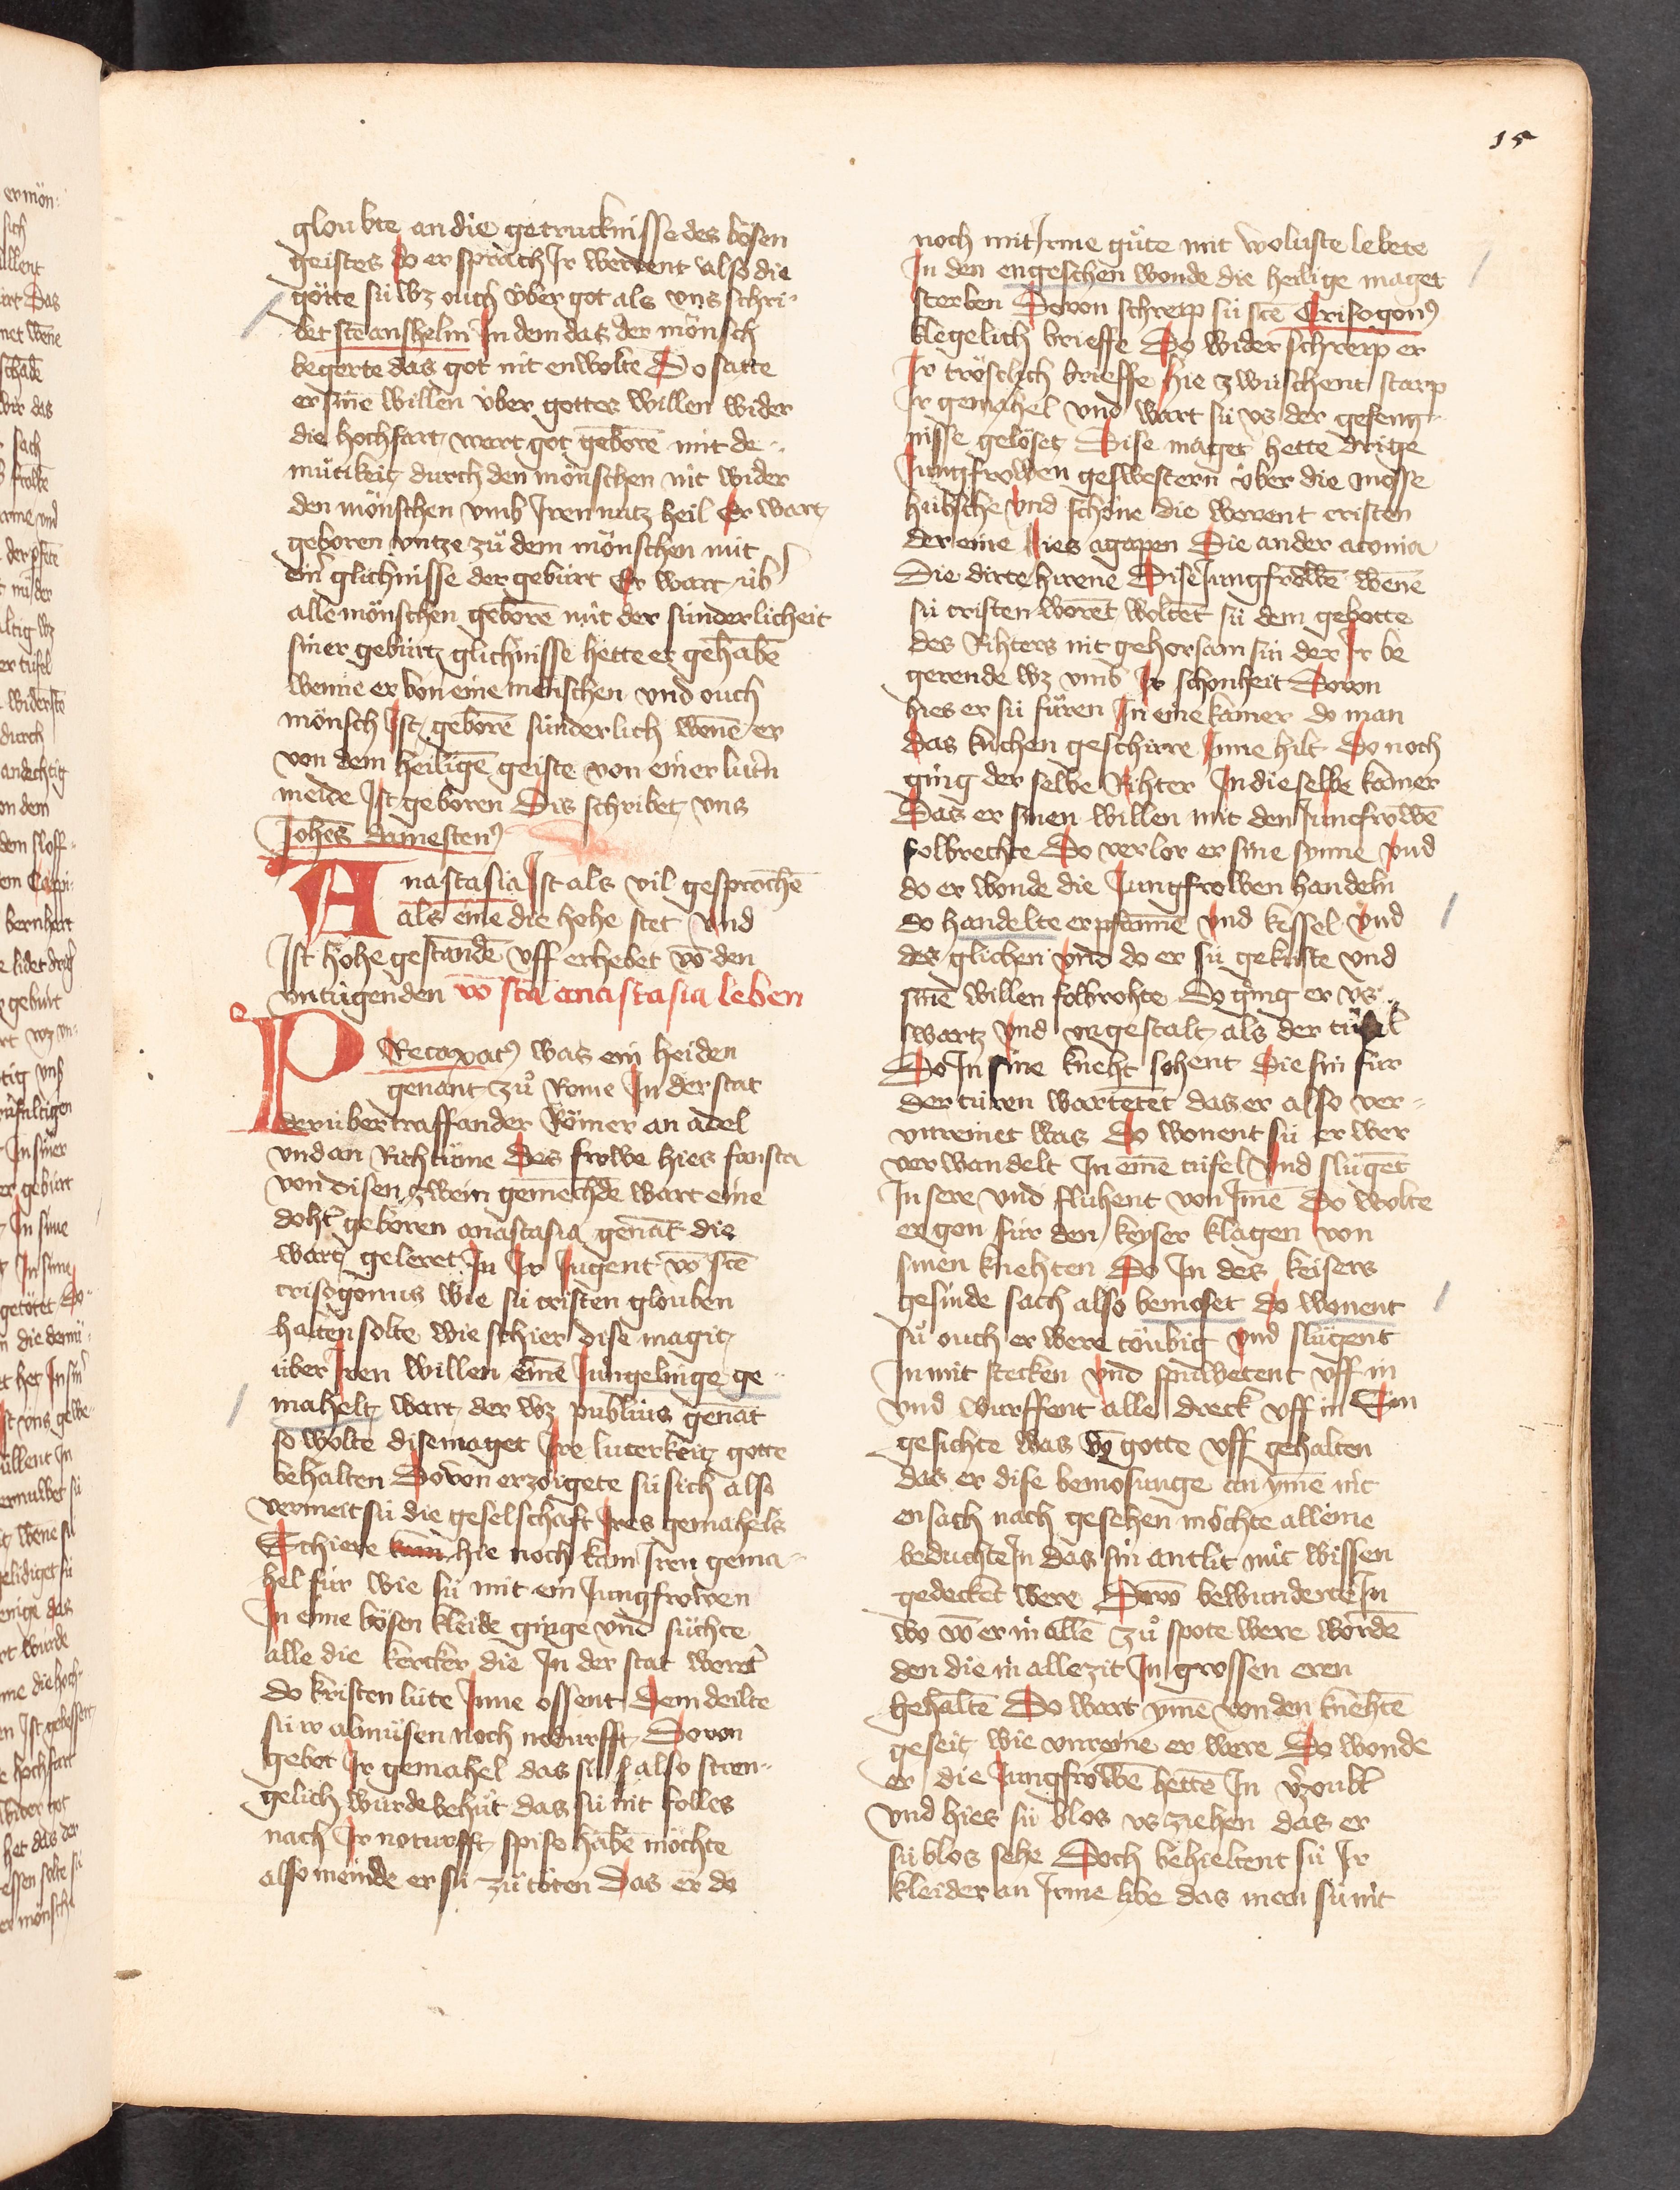 15
gloubte an die getrucknisse des bösen
geistes do er sprach Ir werdent also die
götte sü wz ouch über got als vns schri-
bet stē anshelm In dem das der mönsch
begerte das got nit enwolte Do satte
er sinē willen über gottes willen wider
die hochfart wart got geborē mit de-
mütikeit durch den mönschen nit wider
den mönschen vmb Iren nutz heil Er wart
geboren vntze zů dem mönschen mit
ein glichnisse der geburt Er wart üb
alle mönschen geborē mit der sunderlicheit
siner geburt glichnisse hette er gehabē
wenne er von eine menschen vnd ouch
mönsch Ist geborē sunderlich wenē er
von dem heiligē geiste von einer lutn
meide Ist geboren Dis schribet vns
Johēs damesten9
Anastasia Ist als vil gesprochē
als eine die hohe stet vnd
Ist hohe gestandē vff erhebet vō den
vntugenden vō stā anastasia leben
PRetaxat9 was ein heiden
genant zů Rome In der stat
der übertraff ander Römer an adel
vnd an Richtüme Des frowe hies fausta
von disen zwein gemechdē wart eine
doht geboren anastasia genāt die
wart geleret In Ir Jugent vō stē
crisogonus wie sü cristen glouben
halten solte wie schier dise magit
über Iren willen einē Jungelinge ge-
mahelt wart der wz publius genāt
so wolte dise maget Ire luterkeit gotte
behalten Dovon erzöigete sü sich also
vermeit sü die geselschaft Ires gemahels
Schiere kam hie noch kam Iren gema-
hel für wie sü mit ein Jungfrowen
In eime bösen kleide ginge vnd süchte
alle die kercker die In der stat werēt
do kristen lüte Inne ossent Dem deilte
sü ir almüsen noch nodurfft Dovon
gebot Ir gemahel das sü also stren-
gelich würde behüt das sü nit folles
nach Ir noturfft spise habē möchte
also meinde er sü zü töten Das er do
noch mit Irme güte mit woluste lebete
In den engeschen wonde die heilige maget
sterben Dovon schreip sü stē Crisogon9
klegelich brieffe Do wider schreip er
Ir tröstlich brieffe hie zwüschent starp
Ir gemahel vnd wart sü vs der gefeng-
nisse gelöset Dise maget hette drige
Jungfrowen geswestern über die mosse
hübsche vnd schöne die werent cristen
der eine hies agapen Die ander aconia
Die dirte hirene Dise Jungfrowē wēne
sü cristen worēt woltēt sü dem gebotte
des Rihters nit gehorsam sin der Ir be
gerende wz vmb Ir schonheit Dovon
hies er sü füren In eine kamer do man
das kuchen geschirre Inne hilt Do noch
ging der selbe Rihter In die selbe kamer
Das er sinen willen mit den Juncfrowē
folbrechte Do verlor er sine synne vnd
do er wonde die Jungfrowen handeln
do handelte er pfannē vnd kessel vnd
des glichen vnd do er sü gekuste vnd
sinē willen folbrohte Do ging er vs
swartz vnd vngestalt als der tüfel
Do In sine kneht sohent Die sin für
der türen wartetēt das er also ver-
vnreinet was Do wonent sü er wer
verwandelt In einē tüfel vnd slügēt
In sere vnd flühent von Imē Do wolte
er gon für den keyser klagen von
sinen knehten Do In des keisers
gesinde sach also bemoset do wonent
sü ouch er were töubig vnd slügent
In mit stecken vnd spüwetent vff in
vnd wurffent alle dreck vff in Ein
gesichte was vō gotte vff gehalten
das er dise bemosunge an ymē nit
en sach nach gesehen möchte alleine
beduchte In das sin antlit mit wissen
gedeckēt were Dovō bewunderte In
wo vō er in allē zů spote were wordē
den die in allezit In grossen eren
gehaltē Do wart ymē von den knehtē
geseit wie vnreine er were Do wonde
er die Jungfrowē hettē In v̄zoubt
vnd hies sü blos vsziehen das er
sü blos sehe Doch behieltent sü Ir
kleider an Irme libe das men sü nit